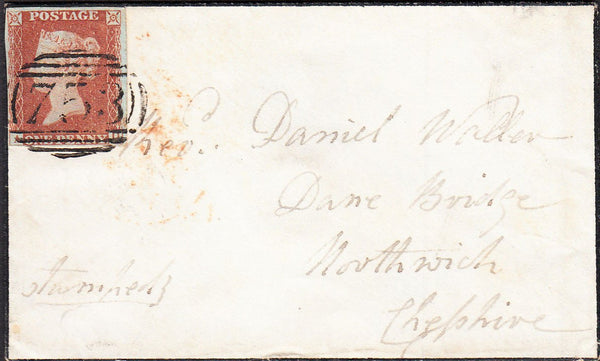 POSTAGE
753
ONE PENNY
Daniel Waller
Dane Bridge
Northwich
Cheshire
stamped